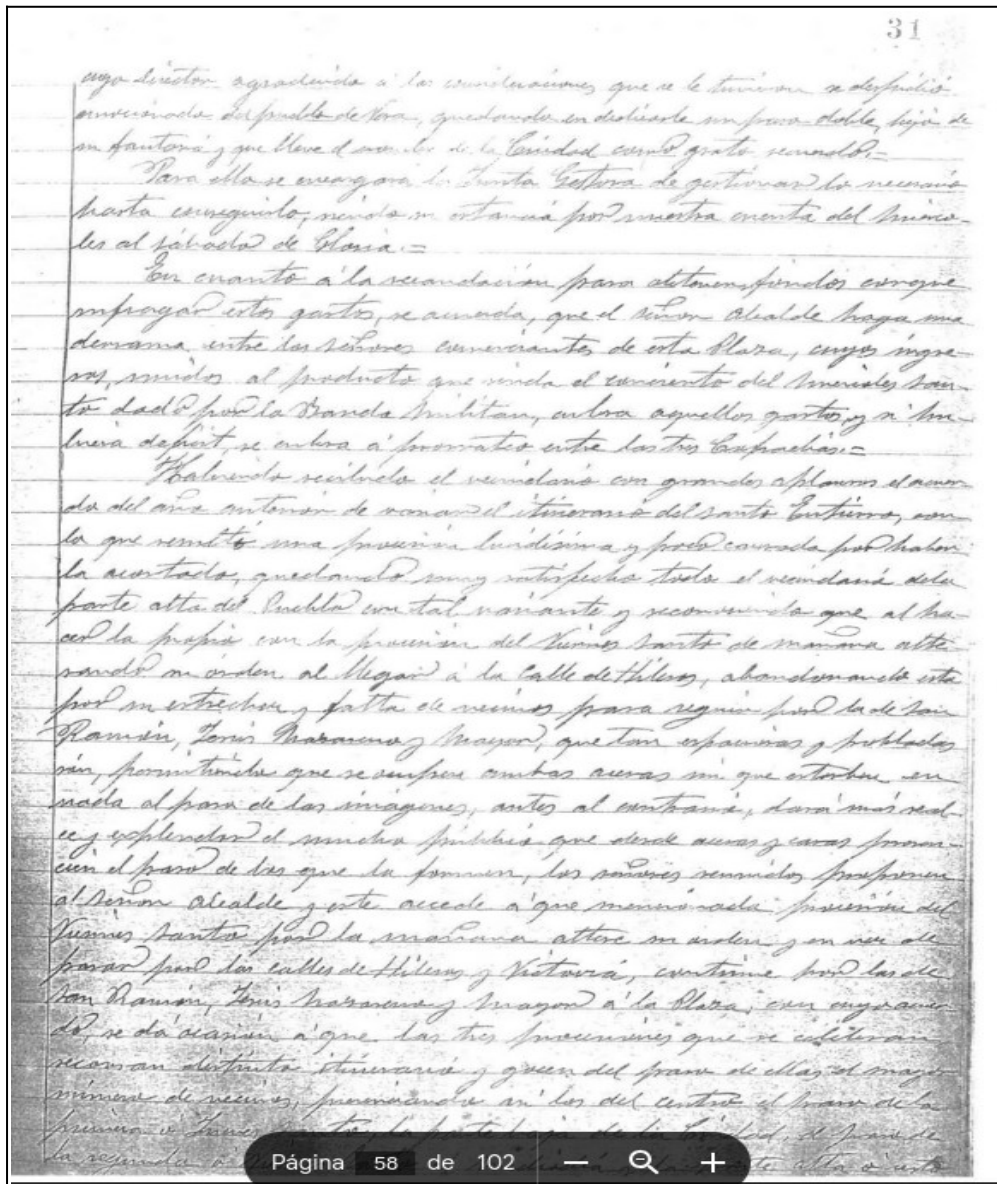 31
cuyo director agradecido á las consideraciones que se le tuvieron se despidió
emocionado del pueblo de Vera, quedando en dedicarle un paso doble, hijo de
su fantasía y que lleve el nombre de la Ciudad como grato recuerdo.=
Para ello se encargará la Junta Gestora de gestionar lo necesario
hasta conseguirlo, siendo su estancia por nuestra cuenta del Miérco-
les al sábado de Gloria.=
En cuanto á la recaudación para obtener fondos conque
sufragar estos gastos, se acuerda, que el señor Alcalde haga una
derrama entre los señores comerciantes de esta Plaza, cuyos ingre-
sos, unidos al producto que rinda el concierto del Miércoles San-
to dado por la Banda Militar, cubra aquellos gastos y si hu-
biera deficit, se cubra á prorrateo entre las tres Cofradías.=
Habiendo recibido el vecindario con grandes aplausos el acuer-
do del año anterior de variar el itinerario del Santo Entierro, con
lo que resultó una procesión lucidísima y poco cansada por haber-
la acortado, quedando muy satisfecho todo el vecindario de la
parte alta del Pueblo con tal variante y reconociendo que al ha-
cer lo propio con la procesión del Viernes Santo de mañana alte-
rando su orden al llegar á la Calle de Hileros, abandonando esta
por su estrechez y falta de vecinos para seguir por la de San
Ramón, Jesús Nazareno y Mayor, que tan espaciosas y pobladas
son, permitiendo que se ocupen ambas aceras sin que estorben en
nada al paso de las imágenes, antes al contrario, dará más real-
ce y esplendor el mucho público que desde aceras y casas presen-
cien el paso de los que la formen, los señores reunidos proponen
al Señor Alcalde y este accede á que mencionada procesión del
Viernes Santo por la mañana altere su orden y en vez de
pasar por las calles de Hileros y Victoria, continúe por las de
San Ramón, Jesús Nazareno y Mayor á la Plaza; con cuyo acuer-
do, se dá ocasión á que las tres procesiones que se celebran
recorran distinto itinerario y gocen del paso de ellas el mayor
número de vecinos, presenciando así los del centro el paso de la
primera ó Jueves Santo, la parte baja de la Ciudad, el paso de
la segunda ó alta ó esto
Página 58 de 102